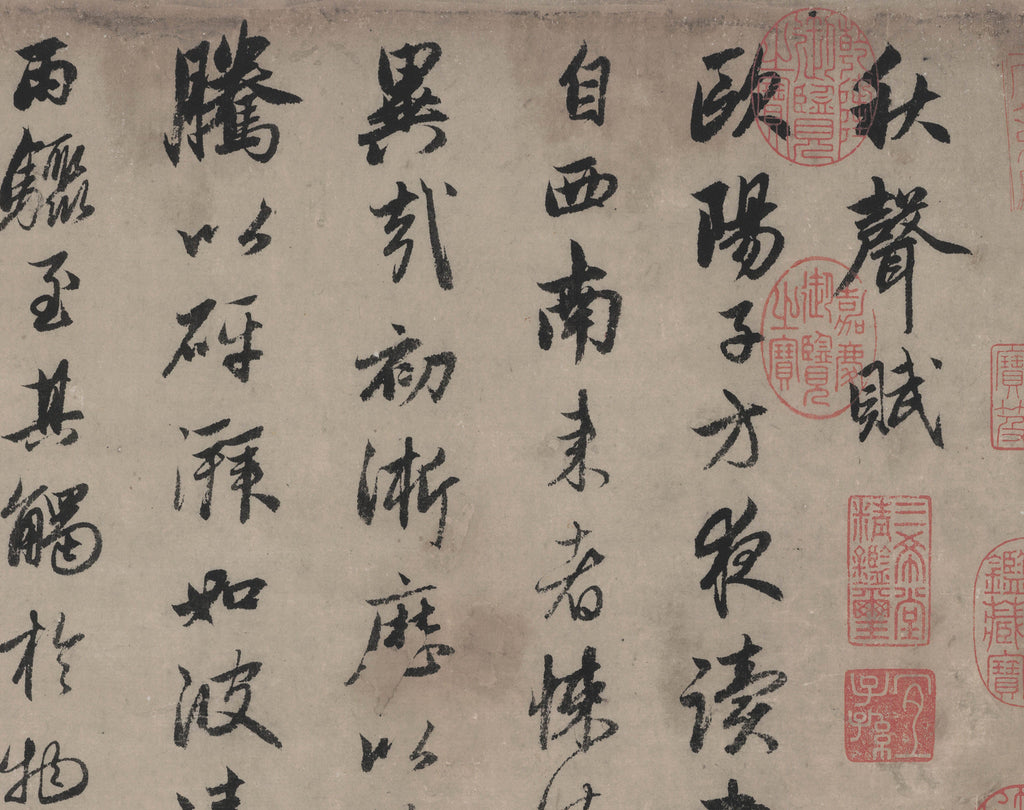 秋聲賦
歐陽子方夜讀
自西南来者悚
異哉初淅瀝以
騰以砰湃如波
雨驟至其觸於物
乾隆御覽之寶
嘉慶御覽之寶
三希堂精鑑璽
宜子孫